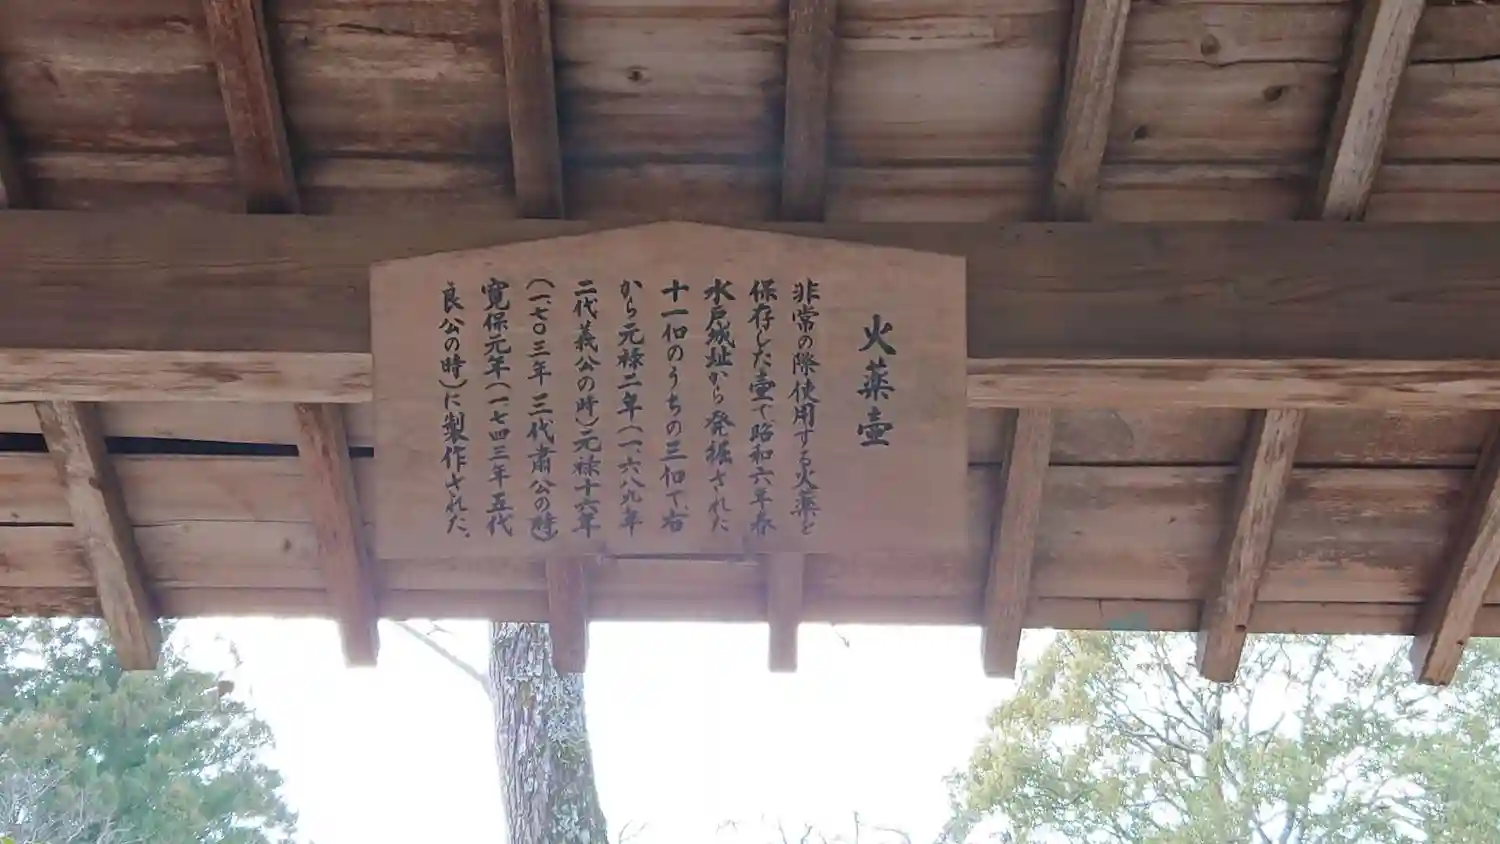 火薬壷
非常の際使用する火薬を
保存した壷で昭和六年春
水戸城址から発掘された
十一個のうちの三個で、右
から元禄二年(一、六八九年
二代義公の時)元禄十六年
(一、七〇三年三代肅公の時)
寛保元年(一、七四三年五代
良公の時)に製作された。